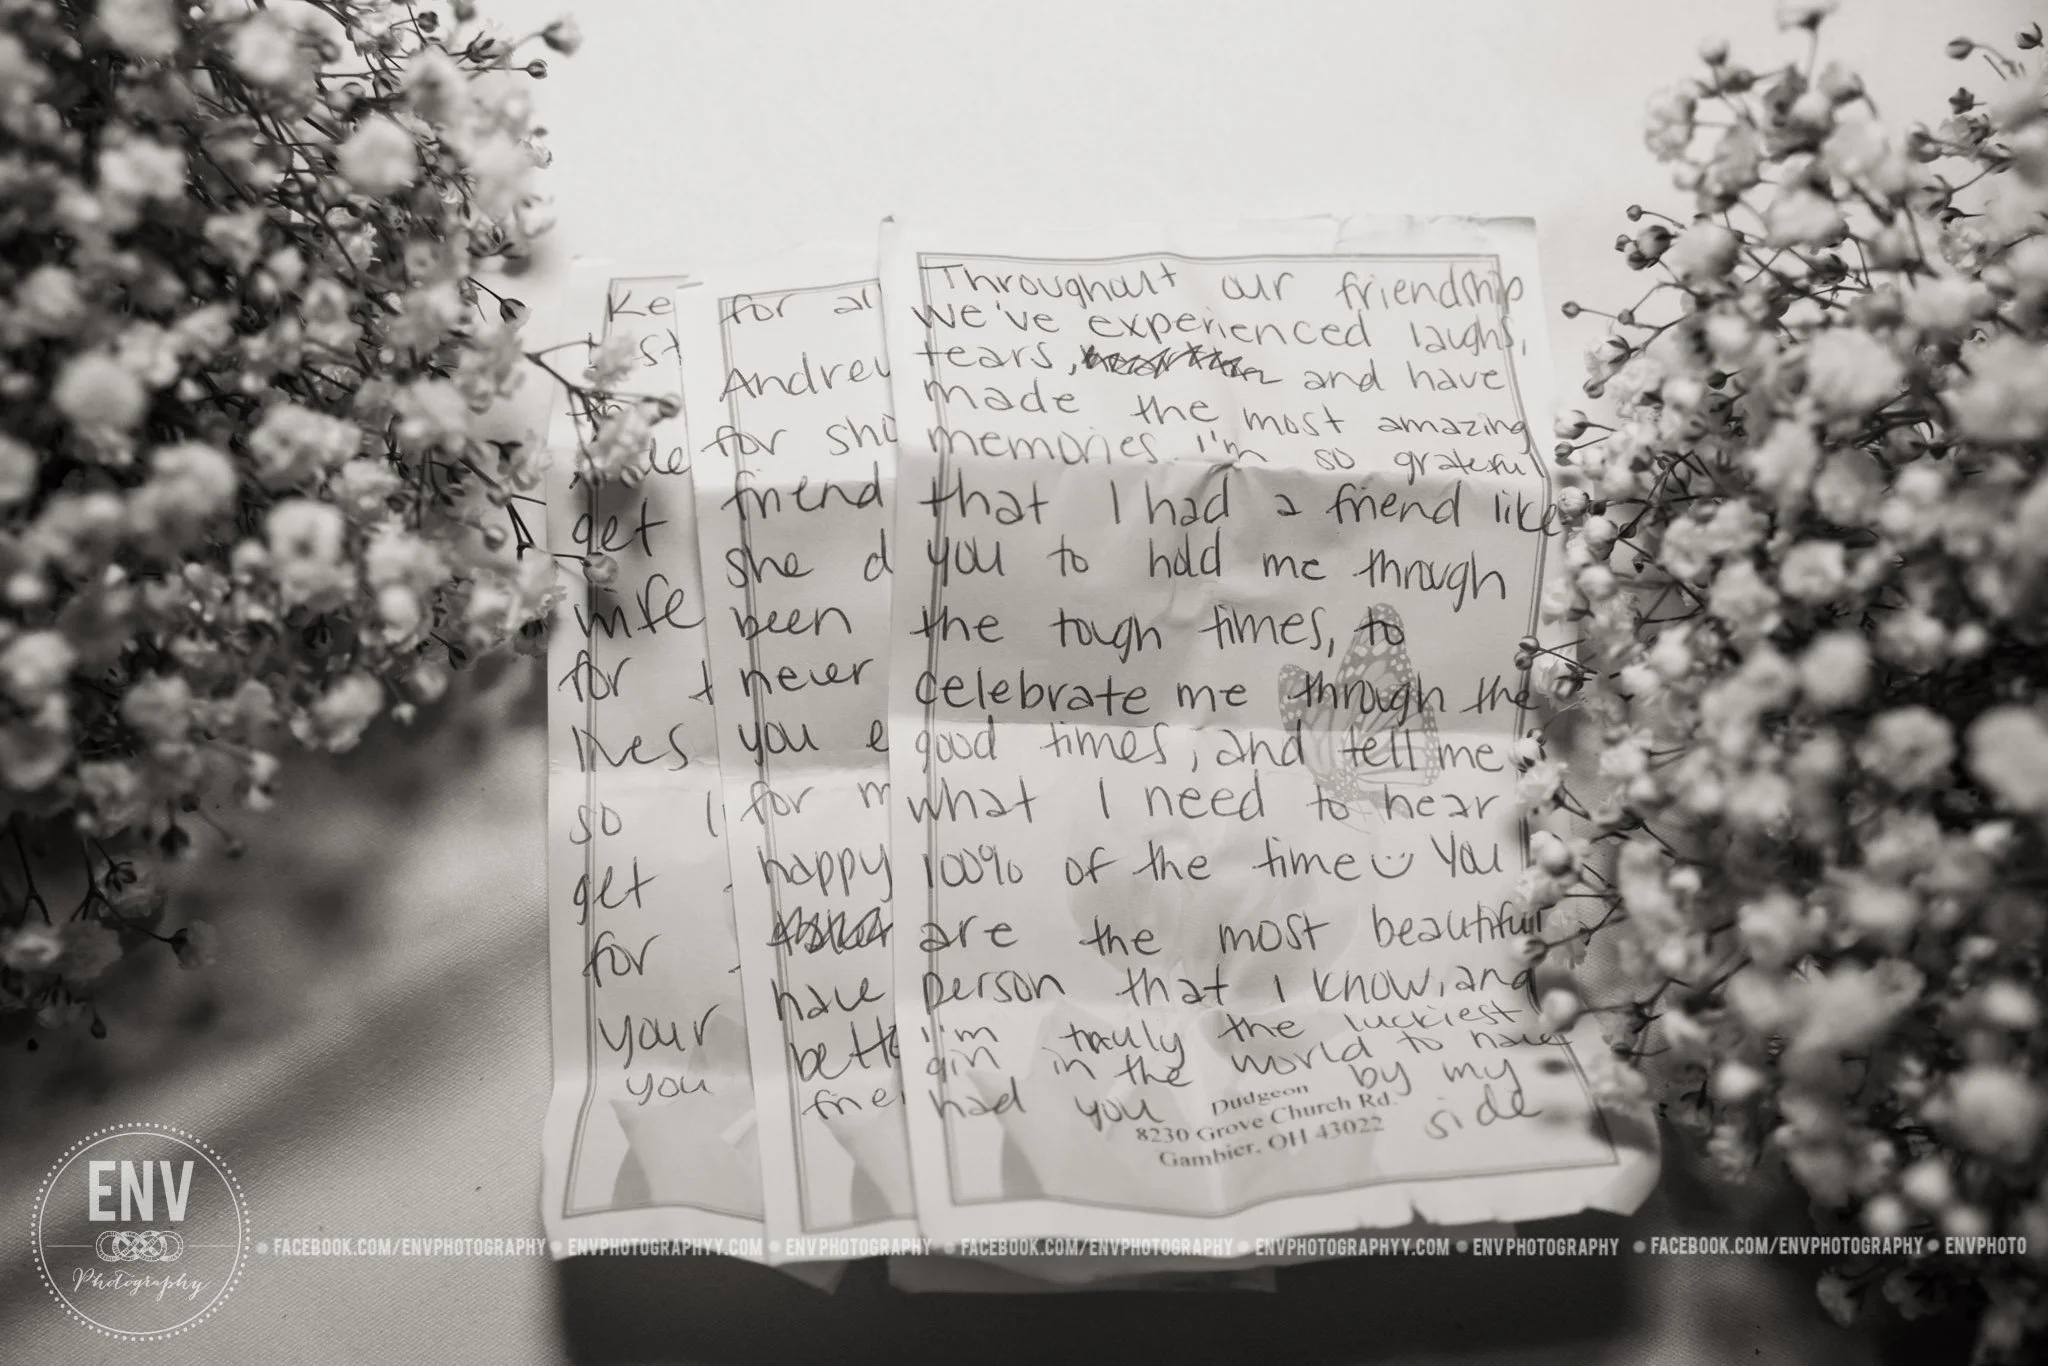 Ke
st
get
wife
for t
lives
so I
get
for
your
you
for al
Andrew
for sho
friend
she d
been
never
you e
for m
happy
have
bette
frie
Throughout our friendship
we've experienced laughs,
tears, and have
made the most amazing
memories. I'm so grateful
that I had a friend like
you to hold me through
the tough times, to
celebrate me through the
good times, and tell me
what I need to hear
100% of the time You
are the most beautiful
person that I know, and
I'm truly the luckiest
girl in the world to have
had you by my
side
Dudgeon
8230 Grove Church Rd.
Gambier, OH 43022
ENV
Photography
FACEBOOK.COM/ENVPHOTOGRAPHY • ENVPHOTOGRAPHYY.COM • ENVPHOTOGRAPHY • FACEBOOK.COM/ENVPHOTOGRAPHY • ENVPHOTOGRAPHYY.COM • ENVPHOTOGRAPHY • FACEBOOK.COM/ENVPHOTOGRAPHY • ENVPHOTO